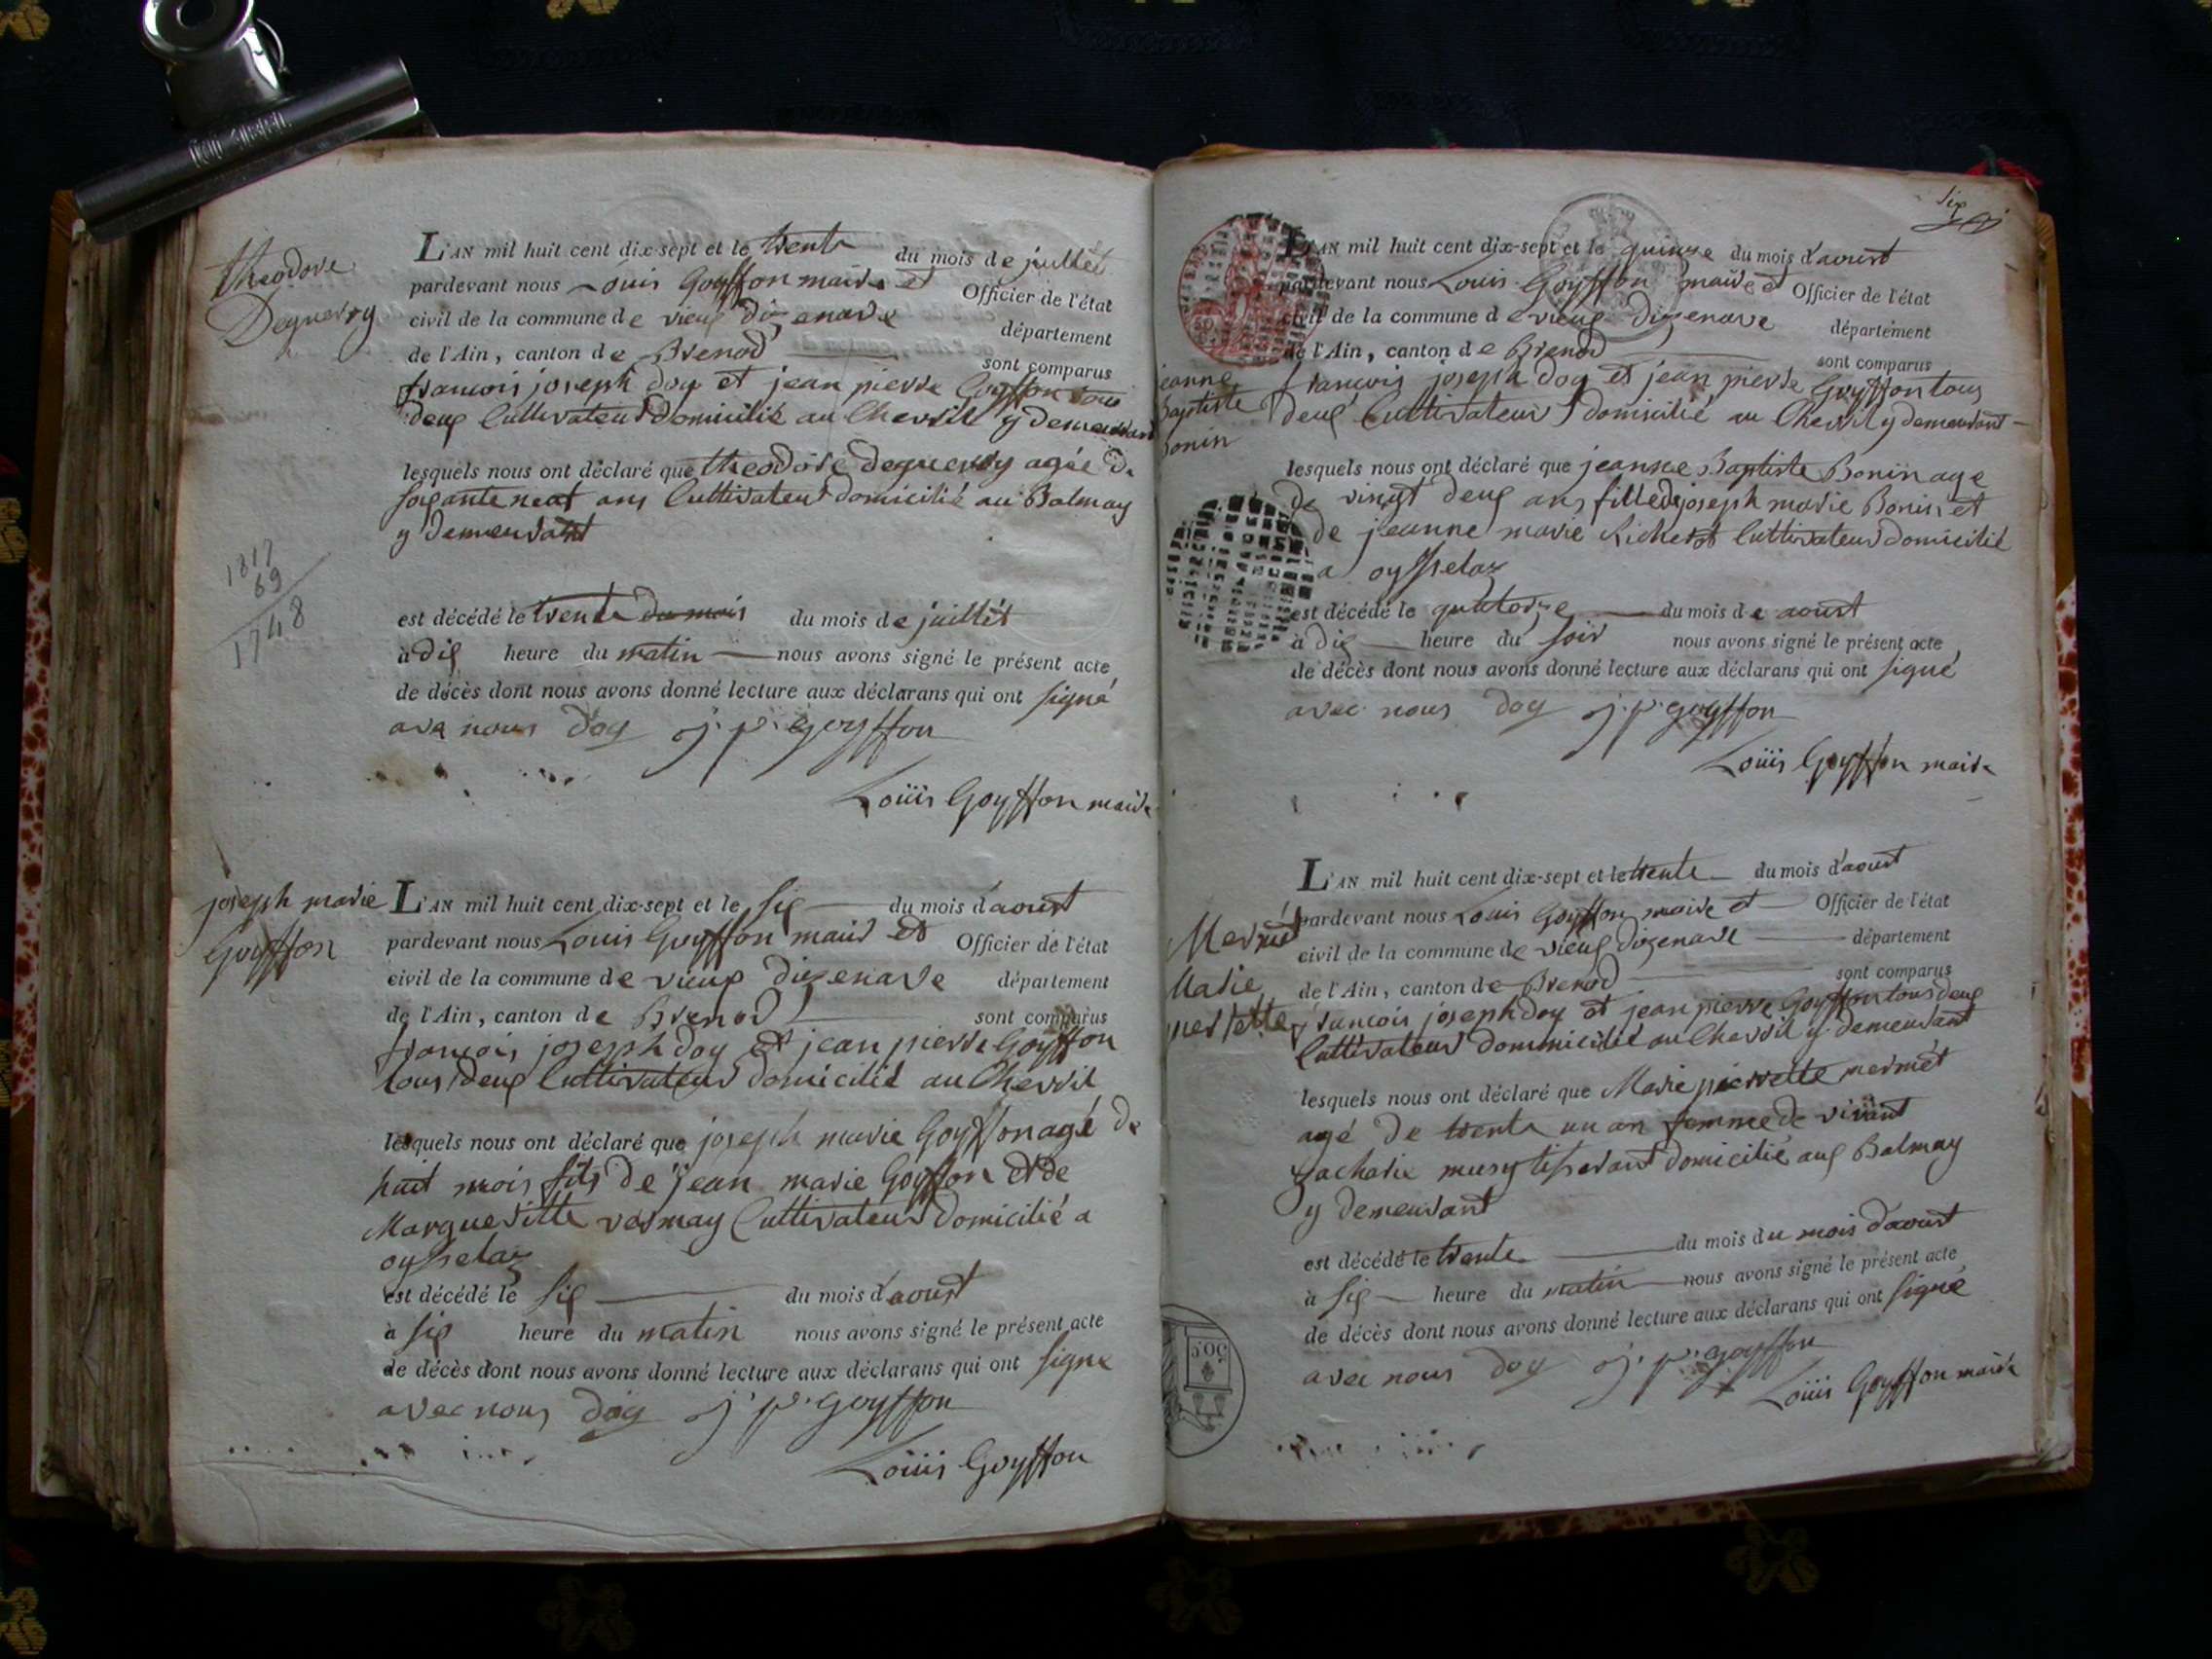 theodore
Deguerry
L'AN mil huit cent dix-sept et le trente du mois de juillet
pardevant nous Louis Goyffon maire et Officier de l'état
civil de la commune de vieux dizenave département
de l'Ain, canton de Brenod sont comparus
francois joseph doy et jean pierre Goyffon tous
deux Cultivateur domicilié au Chevril y demeurant
lesquels nous ont déclaré que theodore deguerry agée de
soixante neaf ans Cultivateur domicilié au Balmay
y demeurant
1817
69
1748
est décédé le trente du mois du mois de juillet
à dix heure du matin nous avons signé le présent acte
de décès dont nous avons donné lecture aux déclarans qui ont signé
avec nous Doy j. p. goyffon
Louis Goyffon maire
joseph marie
Goyffon
L'AN mil huit cent dix-sept et le six du mois d'aoust
pardevant nous Louis Goyffon maire et Officier de l'état
civil de la commune de vieux dizenave département
de l'Ain, canton de Brenod sont comparus
francois joseph doy et jean pierre Goyffon
tous deux Cultivateur domicilié au Chevril
lesquels nous ont déclaré que joseph marie Goyffon agé de
huit mois fils de jean marie Goyffon et de
Margueritte vermay Cultivateur domicilié a
oysselaz
est décédé le six du mois d'aoust
à six heure du matin nous avons signé le présent acte
de décès dont nous avons donné lecture aux déclarans qui ont signé
avec nous Doy j. p. goyffon
Louis Goyffon
six
L'AN mil huit cent dix-sept et le quinze du mois d'aoust
pardevant nous Louis Goyffon maire et Officier de l'état
civil de la commune de vieux dizenave département
de l'Ain, canton de Brenod sont comparus
jeanne
Baptiste
Bonin
francois joseph doy et jean pierre Goyffon tous
deux Cultivateur domicilié au Chevril y demeurant
lesquels nous ont déclaré que jeanne Baptiste Bonin age
de vingt deux ans fille de joseph marie Bonin et
de jeanne marie Richerot Cultivateur domicilié
a oysselaz
est décédé le quatorze du mois de aoust
à dix heure du soir nous avons signé le présent acte
de décès dont nous avons donné lecture aux déclarans qui ont signé
avec nous Doy j. p. goyffon
Louis Goyffon maire
L'AN mil huit cent dix-sept et le trente du mois d'aoust
pardevant nous Louis Goyffon maire et Officier de l'état
civil de la commune de vieux dizenave département
de l'Ain, canton de Brenod sont comparus
Mermet
Marie
francois joseph doy et jean pierre Goyffon tous deux
Cultivateur dommicilié au Chevril y demeurant
lesquels nous ont déclaré que Marie pierrette mermet
agé de trente un an femme de vivant
zacharie musy tisserant domicilié aux Balmay
y demeurant
est décédé le trente du mois du mois d'aoust
à six heure du matin nous avons signé le présent acte
de décès dont nous avons donné lecture aux déclarans qui ont signé
avec nous Doy j. p. goyffon
Louis Goyffon maire
50.C